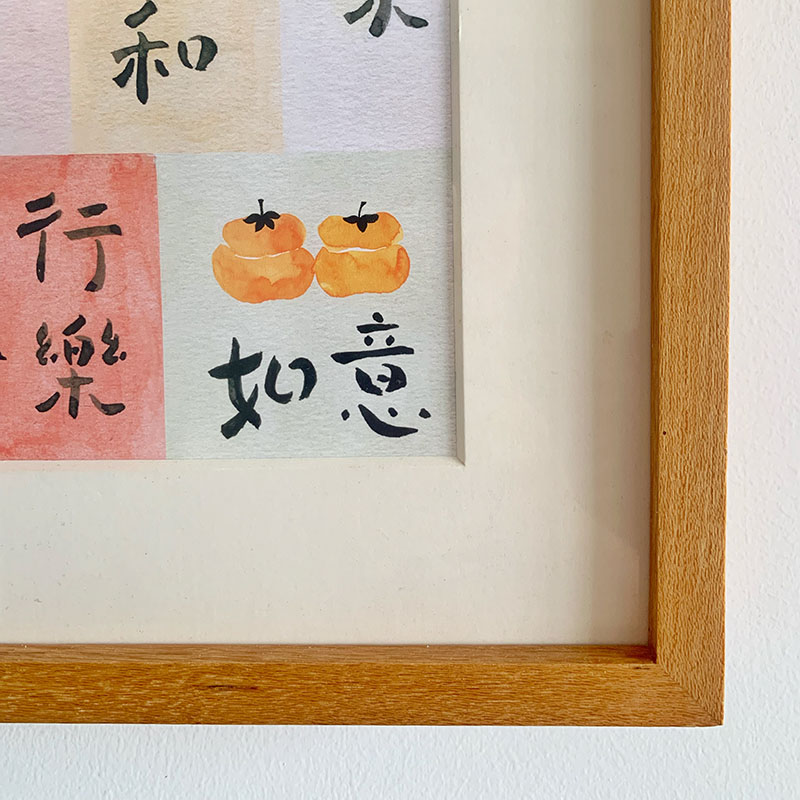 和
行
樂
如意